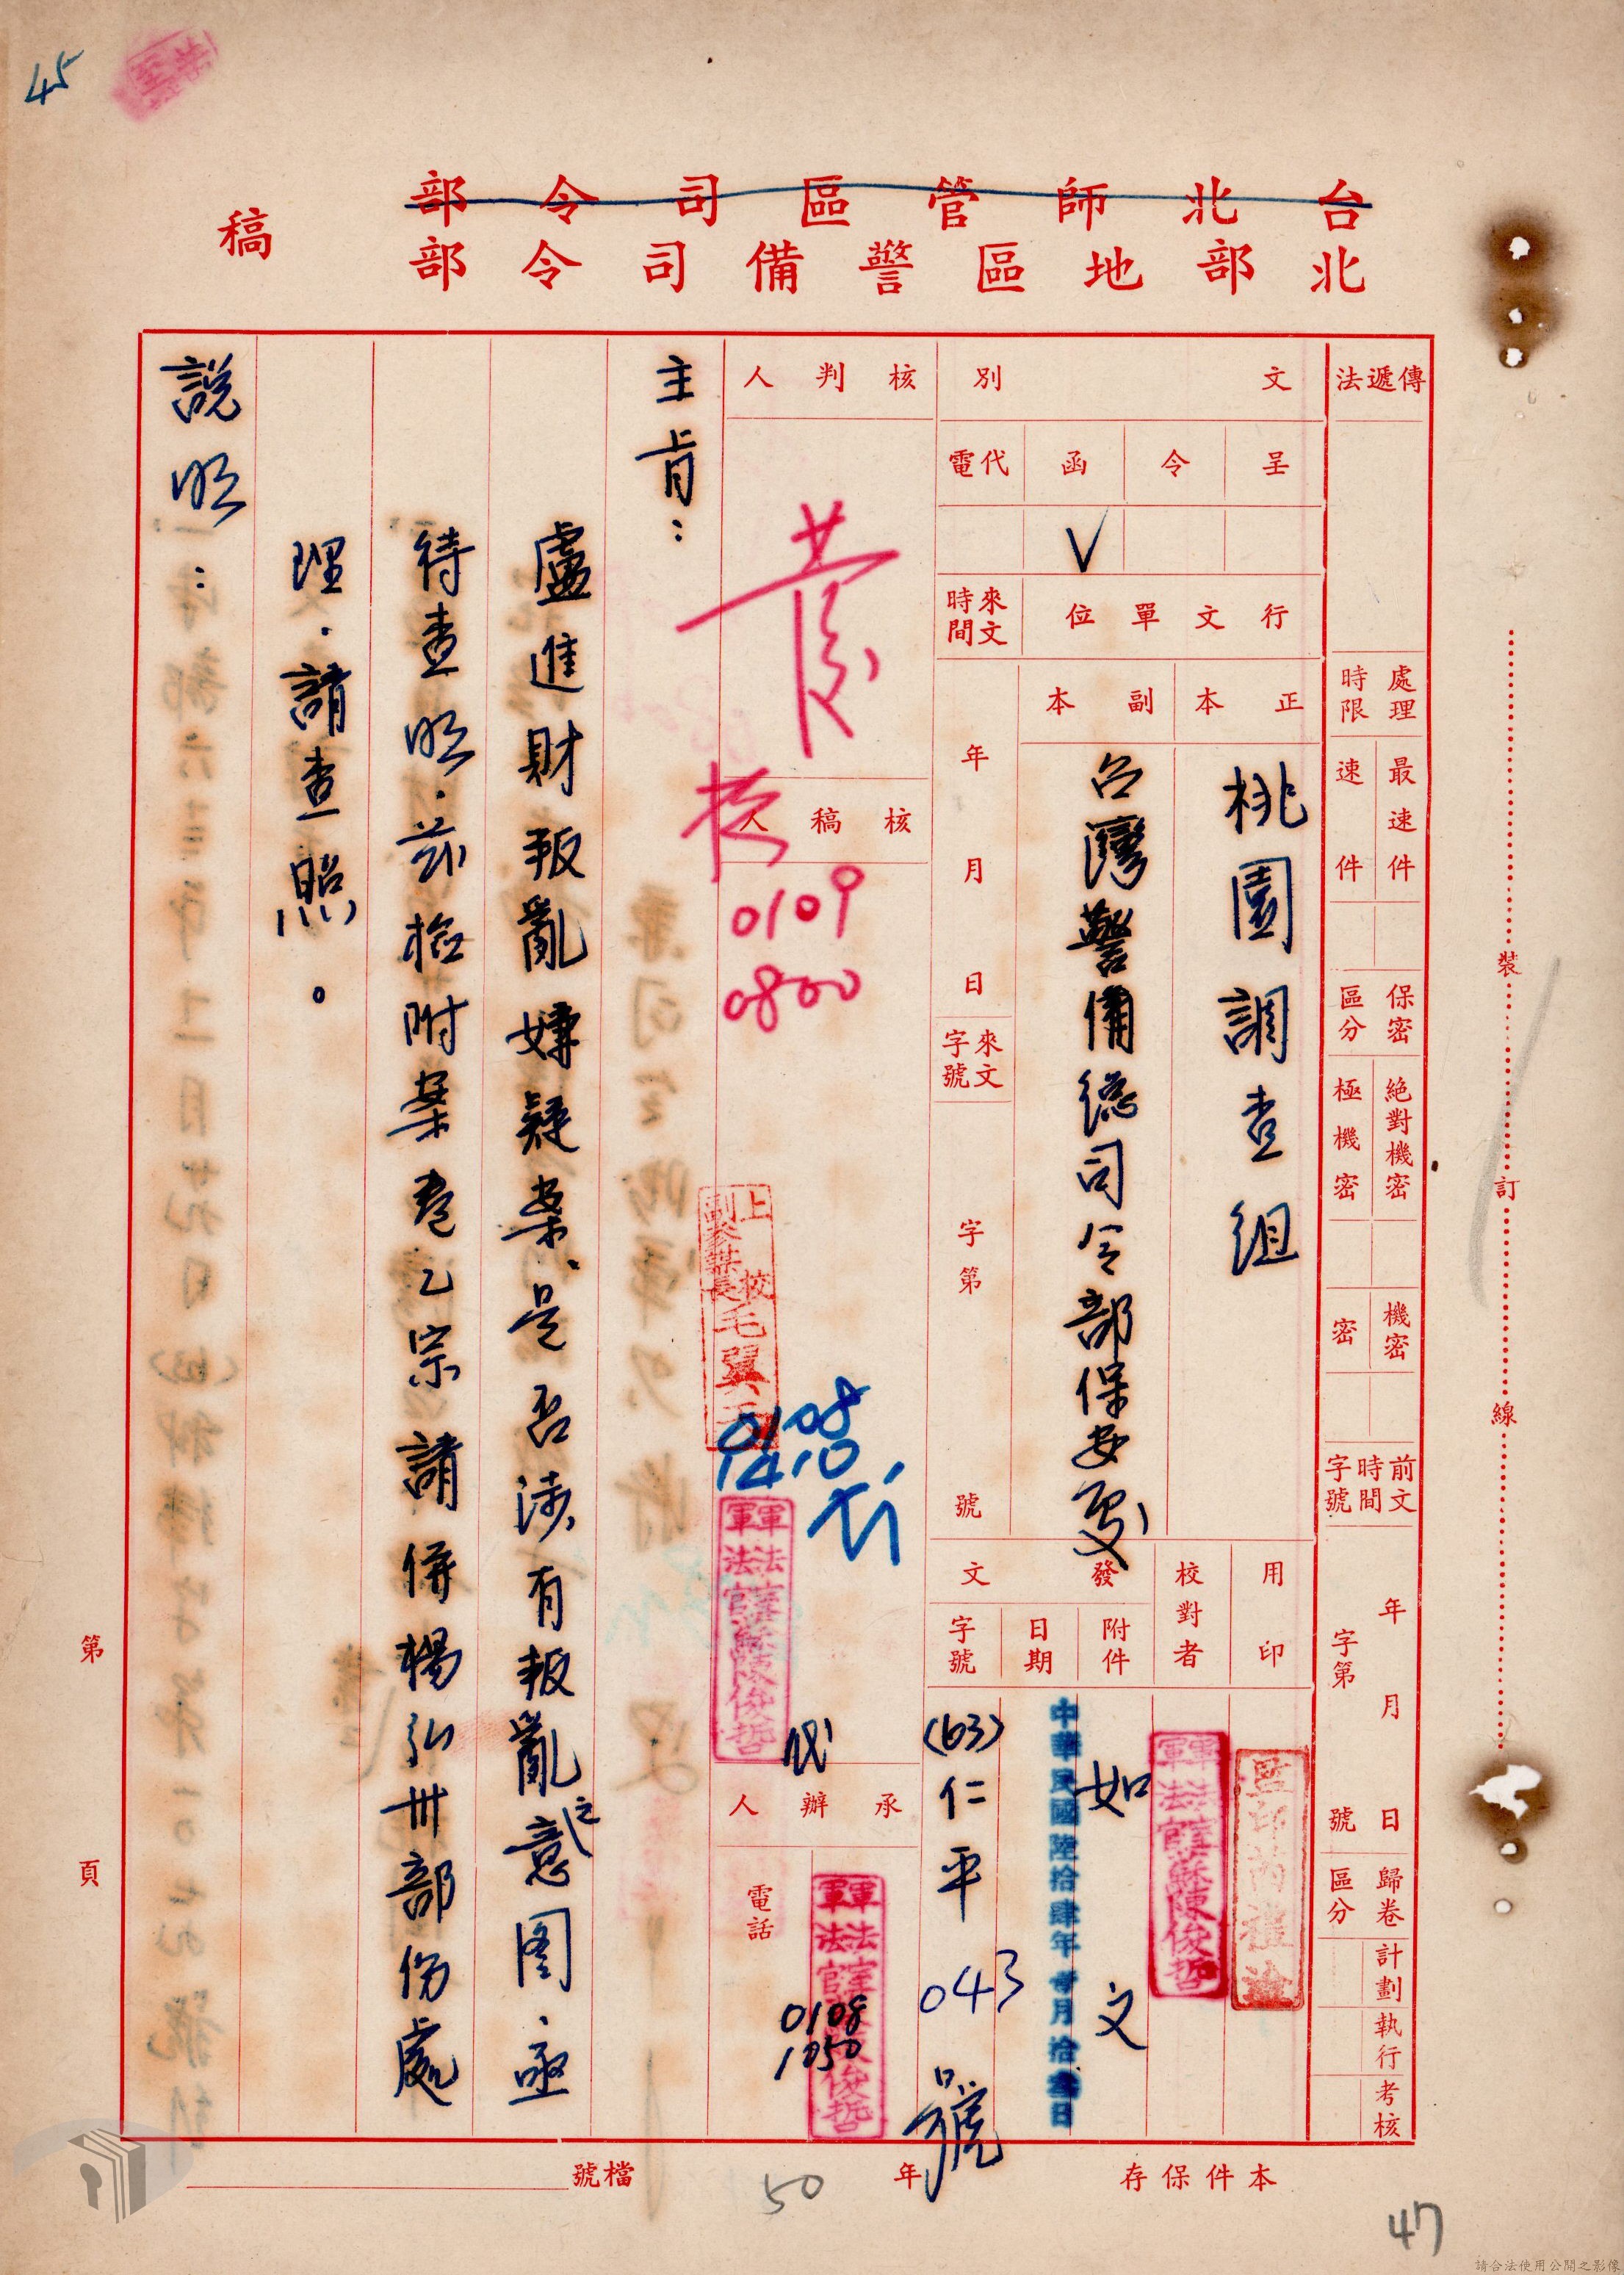 45
台北師管區司令部
北部地區警備司令部
稿
傳遞法
處理時限
最速件
速件
保密區分
絕對機密
極機密
機密
密
前文時間字號
年月日
字第號
歸卷區分
計劃執行考核
文別
呈
令
函
代電
V
行文單位
來文時間
正本
副本
桃園調查組
台灣警備總司令部保安處
年月日
來文字號
字第號
用印
校對者
發文
附件
日期
字號
如文
中華民國陸拾肆年
(63)仁平043號
軍法官陳俊哲
核判人
核稿人
0109
0800
上校副參謀長毛翼
0108
1410
軍法官陳俊哲
承辦人
電話
軍法官陳俊哲
0108
1050
主旨：
盧進財叛亂嫌疑案、是否涉有叛亂之意图，亟
待查明．茲檢附案卷乙宗請併楊弘卅部份處
理．請查照。
說明：
第頁
裝訂線
本件保存
年
50
檔號
47
請合法使用公開之影像